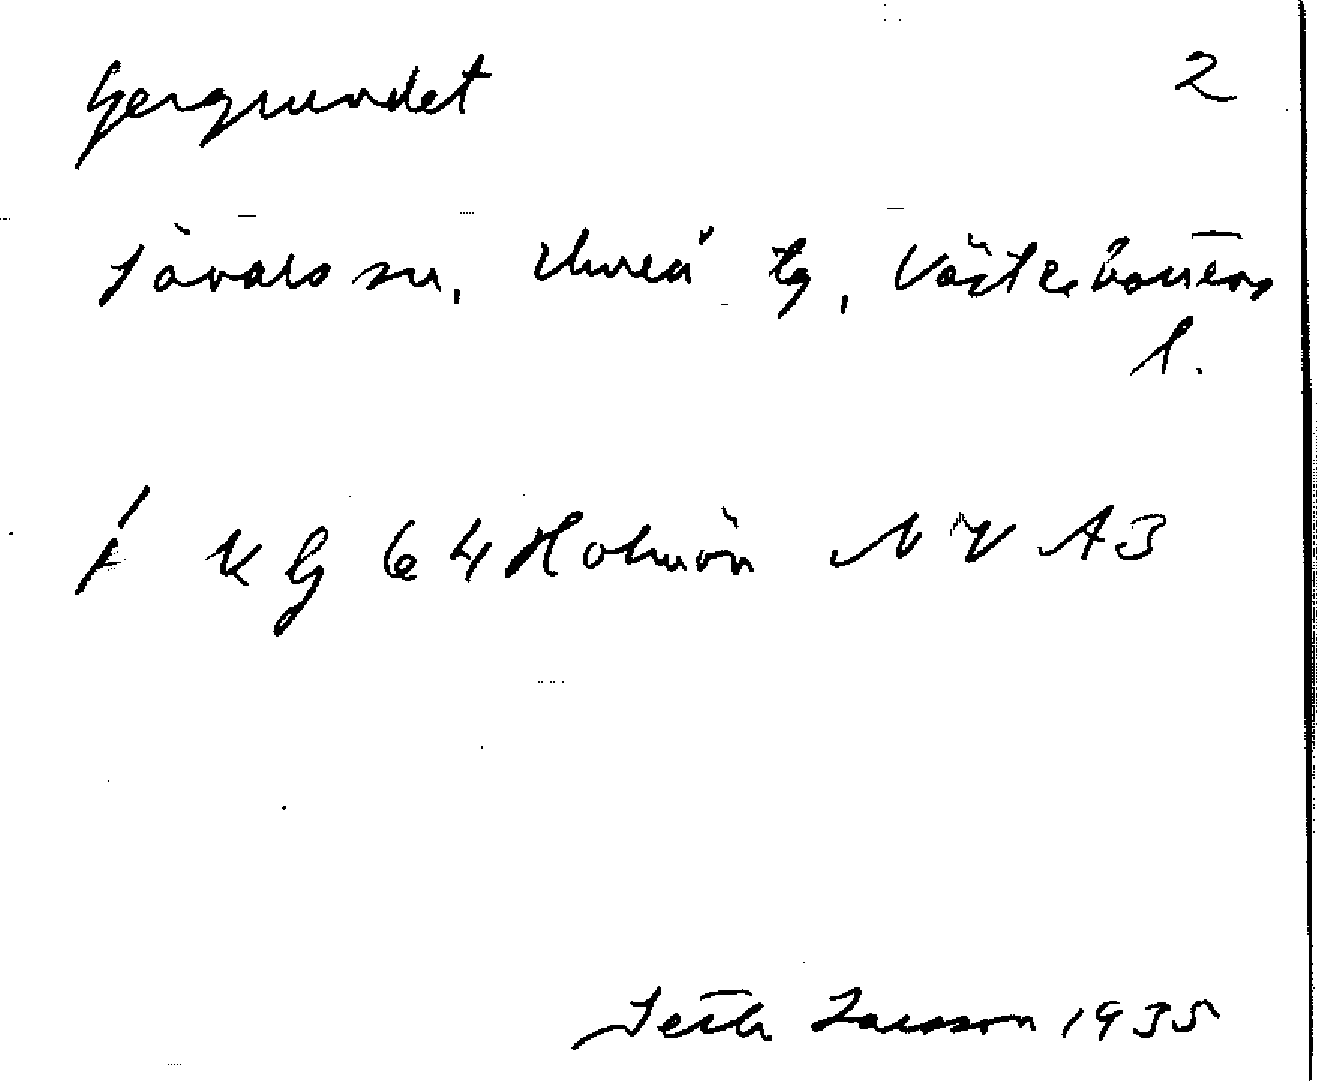 Gergrundet 2
Sävars sn, Umeå tg, Västerbottens
l.
KG 64 Holmön NV A3
Seth Larsson 1935